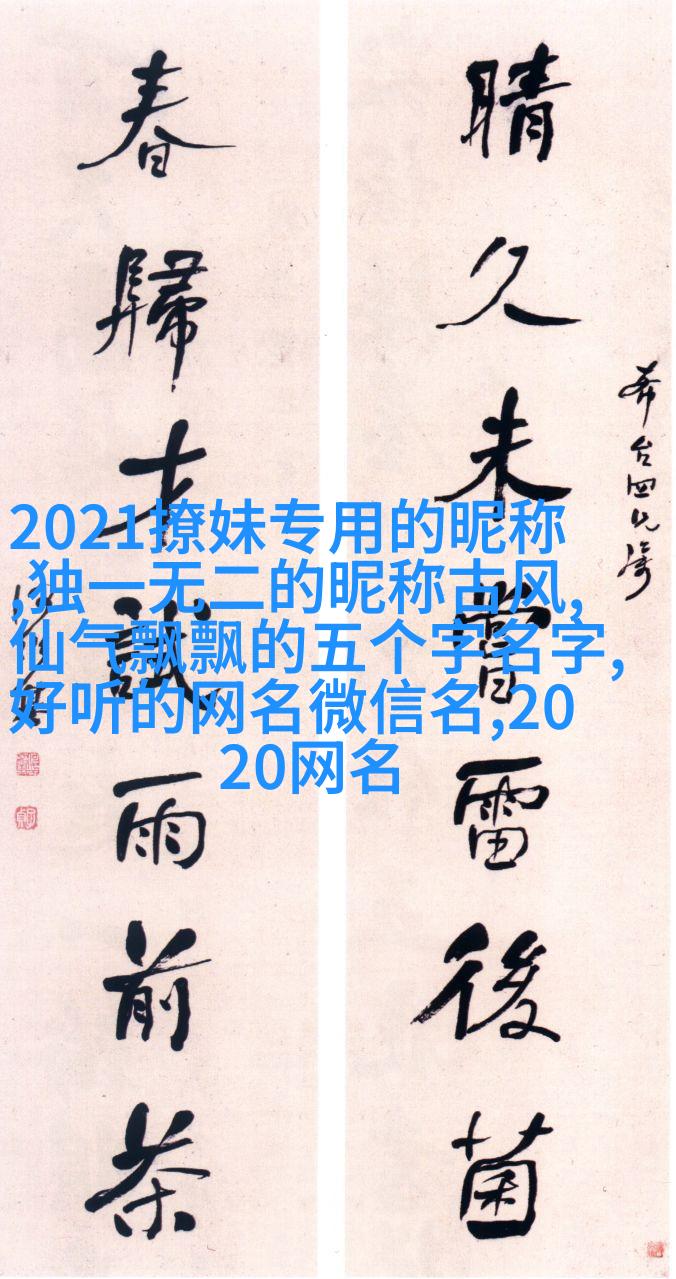 晴久未嘗雷後菌
春歸才試雨前茶
2021撩妹专用的昵称
,独一无二的昵称古风,
仙气飘飘的五个字名字,
好听的网名微信名,20
20网名